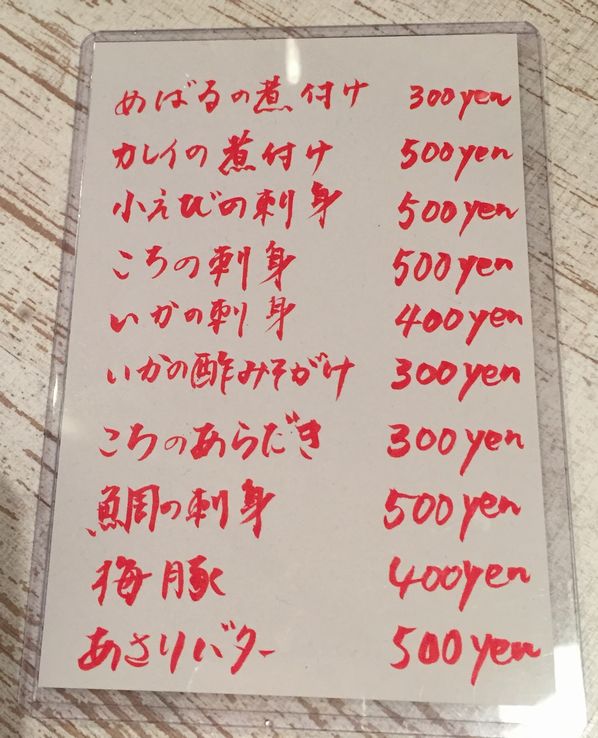 めばるの煮付け 300yen
カレイの煮付け 500yen
小えびの刺身 500yen
こちの刺身 500yen
いかの刺身 400yen
いかの酢みそがけ 300yen
こちのあらだき 300yen
鯛の刺身 500yen
梅豚 400yen
あさりバター 500yen